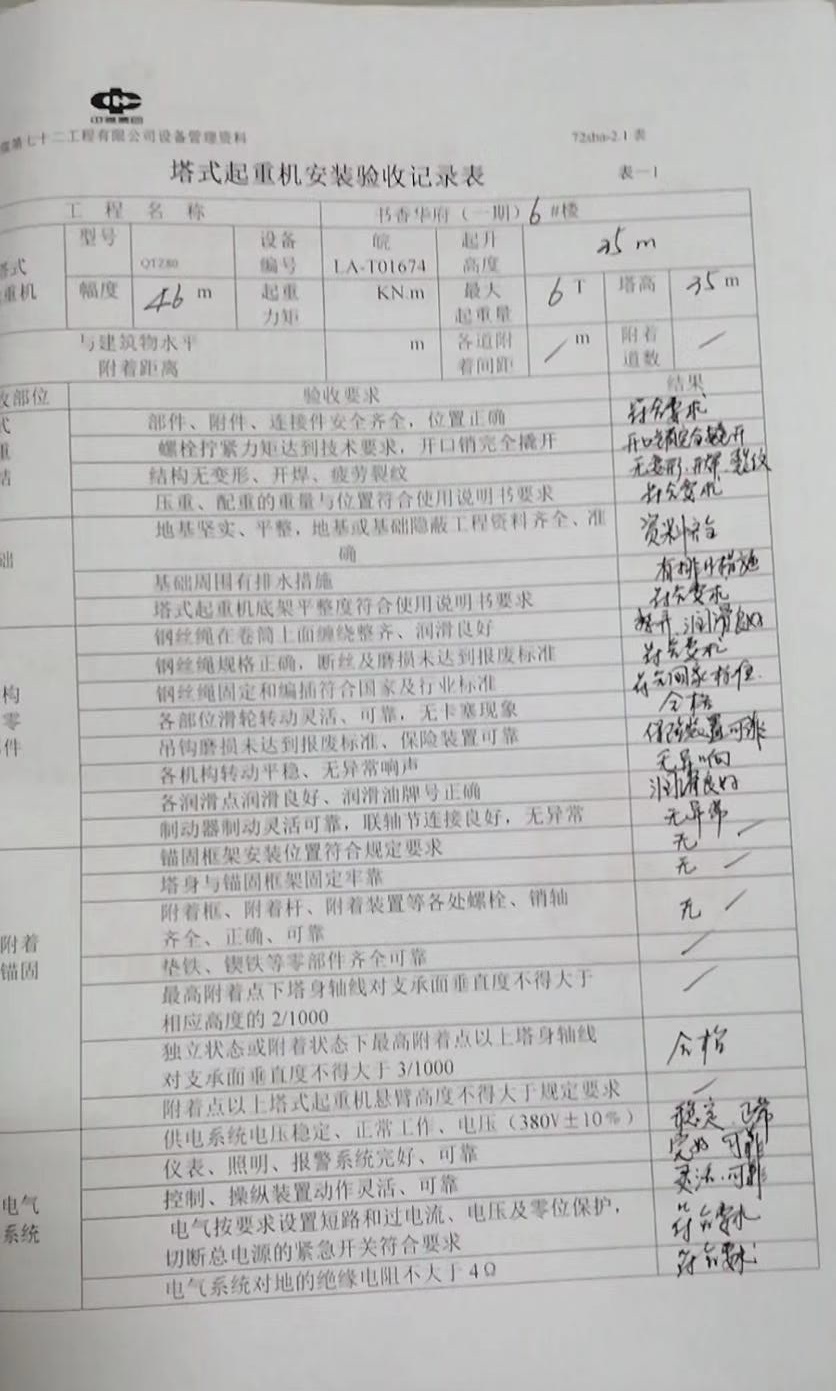 中煤集团
煤第七十二工程有限公司设备管理资料 72sha-2.1 表
塔式起重机安装验收记录表 表一1
工 程 名 称 书香华府（一期）6#楼
塔式
重机
型号 QTZ80 设备编号 皖LA-T01674 起升高度 35 m
幅度 46 m 起重力矩 KN.m 最大起重量 6 T 塔高 35 m
与建筑物水平附着距离 m 各道附着间距 / m 附着道数 /
收部位 验收要求 结果
式
重
结
部件、附件、连接件安全齐全，位置正确 符合要求
螺栓拧紧力矩达到技术要求，开口销完全撬开 开口销完全撬开
结构无变形、开焊、疲劳裂纹 无变形.开焊.裂纹
压重、配重的重量与位置符合使用说明书要求 符合要求
础
地基坚实、平整，地基或基础隐蔽工程资料齐全、准 资料齐全
确
基础周围有排水措施 有排水措施
塔式起重机底架平整度符合使用说明书要求 符合要求
构
零
件
钢丝绳在卷筒上面缠绕整齐、润滑良好 润滑良好
钢丝绳规格正确，断丝及磨损未达到报废标准 符合要求
钢丝绳固定和编插符合国家及行业标准 符合国家标准.
各部位滑轮转动灵活、可靠，无卡塞现象 合格
吊钩磨损未达到报废标准、保险装置可靠 保险装置可靠
各机构转动平稳、无异常响声 无异响
各润滑点润滑良好、润滑油牌号正确 润滑良好
制动器制动灵活可靠，联轴节连接良好，无异常 无异常
附着
锚固
锚固框架安装位置符合规定要求 无 /
塔身与锚固框架固定牢靠 无 /
附着框、附着杆、附着装置等各处螺栓、销轴 无 /
齐全、正确、可靠
垫铁、锲铁等零部件齐全可靠 /
最高附着点下塔身轴线对支承面垂直度不得大于 /
相应高度的 2/1000
独立状态或附着状态下最高附着点以上塔身轴线 合格
对支承面垂直度不得大于 3/1000
附着点以上塔式起重机悬臂高度不得大于规定要求 /
电气
系统
供电系统电压稳定、正常工作、电压（380V±10%） 稳定.正常
仪表、照明、报警系统完好、可靠 完好 可靠
控制、操纵装置动作灵活、可靠 灵活.可靠
电气按要求设置短路和过电流、电压及零位保护， 符合要求
切断总电源的紧急开关符合要求
电气系统对地的绝缘电阻不大于 4Ω 符合要求